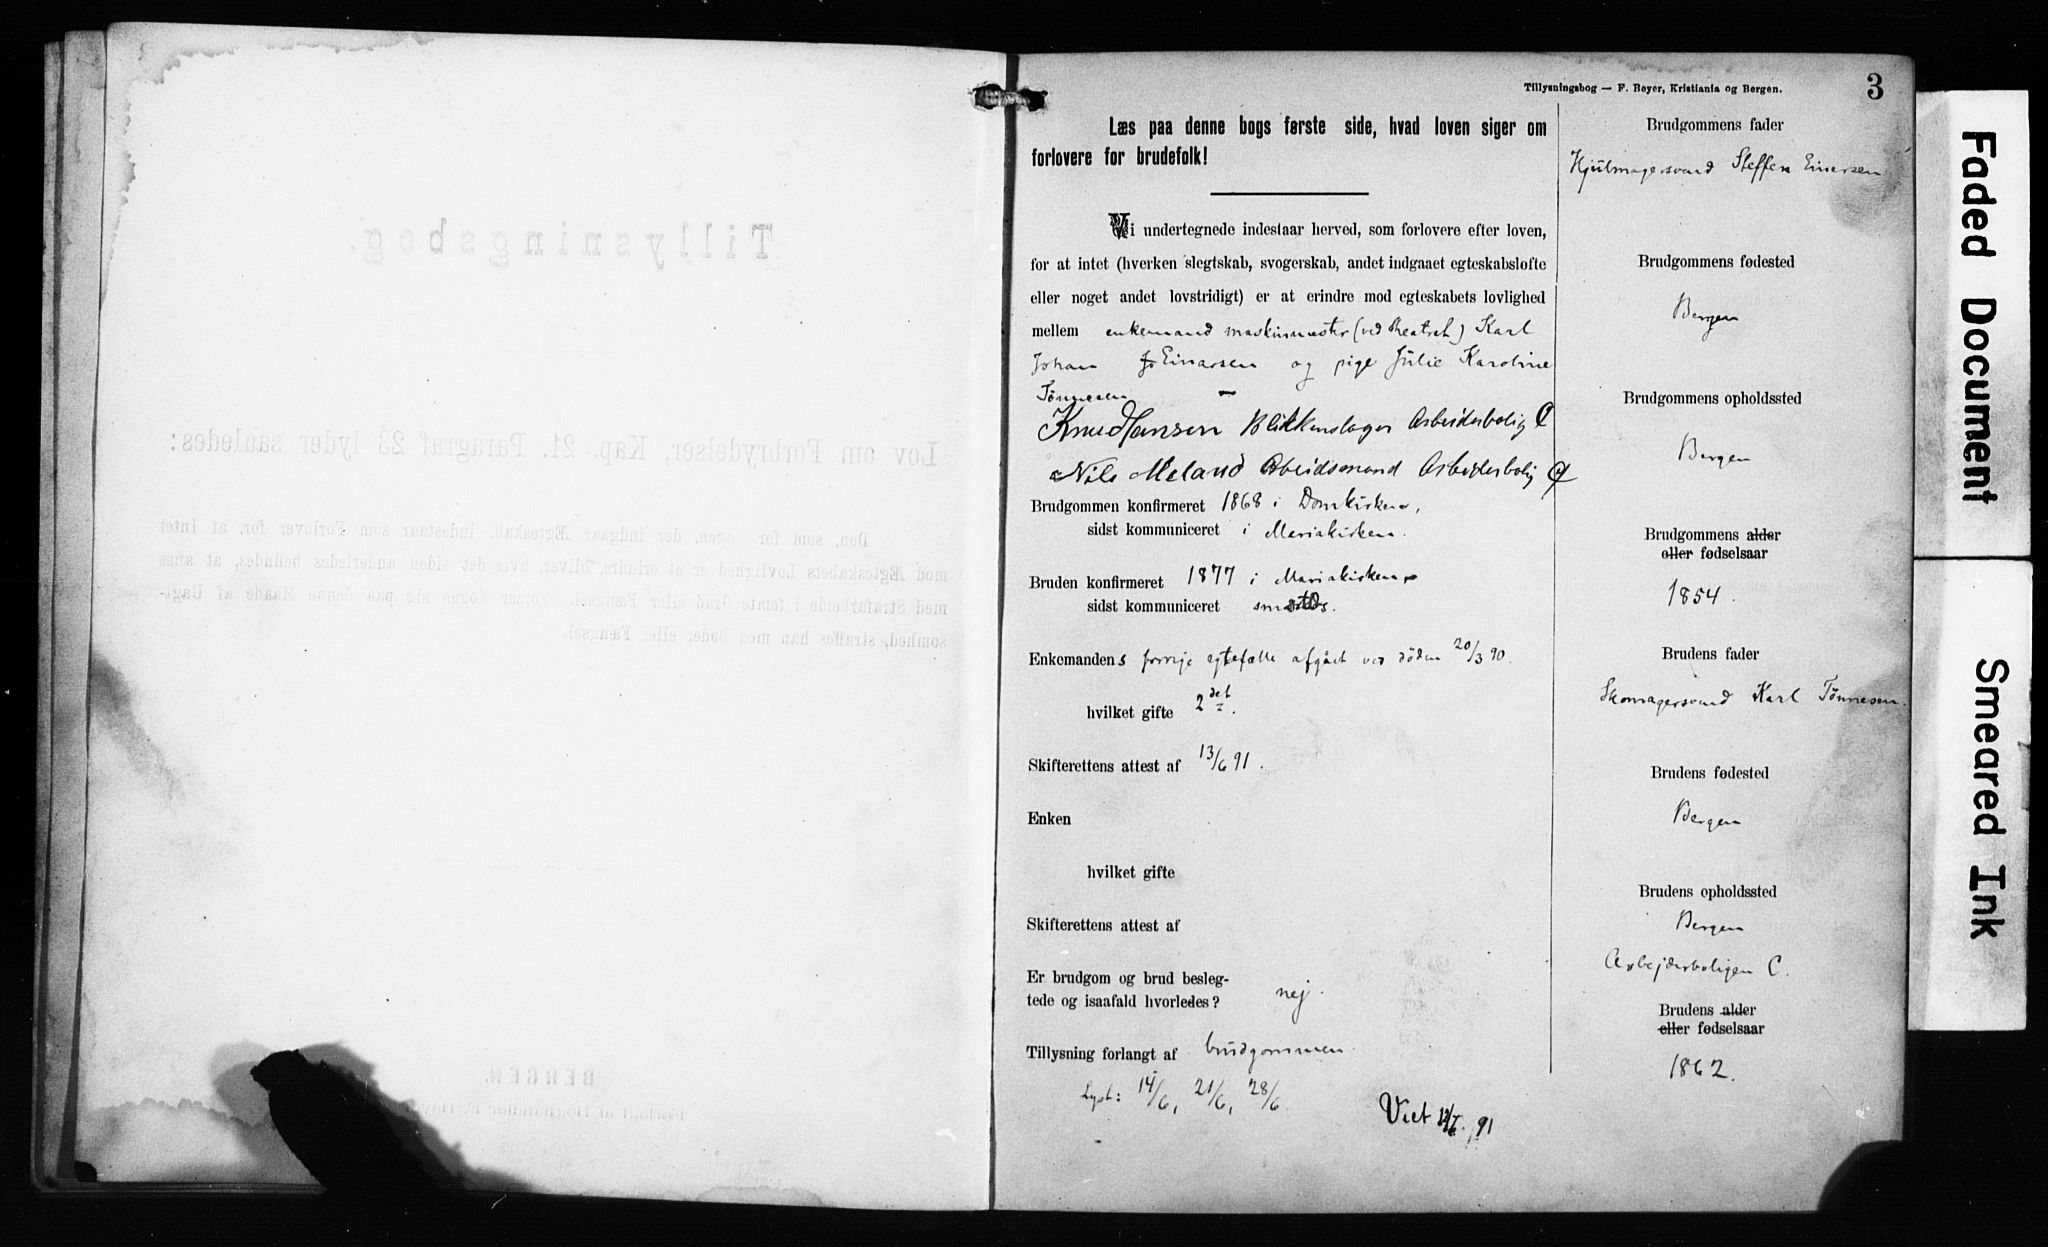 Tillysningsbog — F. Beyer, Kristiania og Bergen.
3
Læs paa denne bogs første side, hvad loven siger om
forlovere for brudefolk!
Vi undertegnede indestaar herved, som forlovere efter loven,
for at intet (hverken slegtskab, svogerskab, andet indgaaet egteskabsløfte
eller noget andet lovstridigt) er at erindre mod egteskabets lovlighed
mellem enkemand maskinmester (ved theatret) Karl
Johan Einarsen og pige Julie Karoline
Tönnesen
Knud Hansen Blikkenslager Arbeiderbolig C
Nils Meland Arbeidsmand Arbeiderbolig C
Brudgommen konfirmeret 1868 i Domkirken,
sidst kommuniceret i Mariakirken.
Bruden konfirmeret 1877 i Mariakirken
sidst kommuniceret smstds.
Enkemandens forrige egtefælle afgået ved döden 20/3 90.
hvilket gifte 2det.
Skifterettens attest af 13/6 91.
Enken
hvilket gifte
Skifterettens attest af
Er brudgom og brud besleg-
tede og isaafald hvorledes? nej.
Tillysning forlangt af brudgommen.
Lyst: 14/6, 21/6, 28/6
Viet 91
Brudgommens fader
Hjulmagersvend Steffen Einersen
Brudgommens fødested
Bergen
Brudgommens opholdssted
Bergen
Brudgommens alder
eller fødselsaar
1854.
Brudens fader
Skomagersvend Karl Tönnesen.
Brudens fødested
Bergen
Brudens opholdssted
Bergen
Arbejderboligen C.
Brudens alder
eller fødselsaar
1862.
Faded Document
Smeared Ink
Tillysningsbog.
Lov om Forbrydelser, Kap. 21. Paragraf 23 lyder saaledes:
Den, som for Nogen, der indgaar Ægteskab, indestaar som Forlover for, at Intet
mod Ægteskabets Lovlighed er at erindre, bliver, hvis det siden anderledes befindes, at anse
med Strafarbeide i femte Grad eller Fængsel. Forser Nogen sig paa denne Maade af Uagt-
somhed, straffes han med Bøder eller Fængsel.
BERGEN.